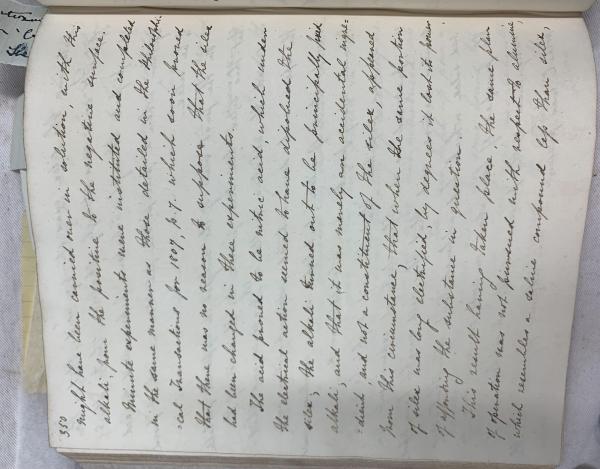 350
might have been carried over in solution, with this
alkali, from the positive to the negative surface.
Minute experiments were instituted and completed
in the same manner as those detailed in the Philosophi:
cal Transactions for 1807, p. 7. which soon proved
that there was no reason to suppose that the silex
had been changed in these experiments.
The acid proved to be nitric acid, which under
the electrical action seemed to have dissolved the
silex; the alkali turned out to be principally fixed
alkali; and that it was merely an accidental ingre=
dient, and not a constituent of the silex, appeared
from this circumstance, that when the same portion
of silex was long electrified, by degrees it lost its power
of affording the substance in question.
This result having taken place, the same plan
of operation was not pursued with respect to alumine,
which resembles a saline compound less than silex,